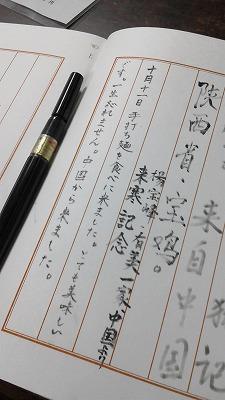 来自中国
陕西省·宝鸡。
楊宝峰·有美一家、中国より
来寒記念
十月十一日 手打ち麺を食べに来ました。とても美味しい
です。一生忘れません。中国から来ました。